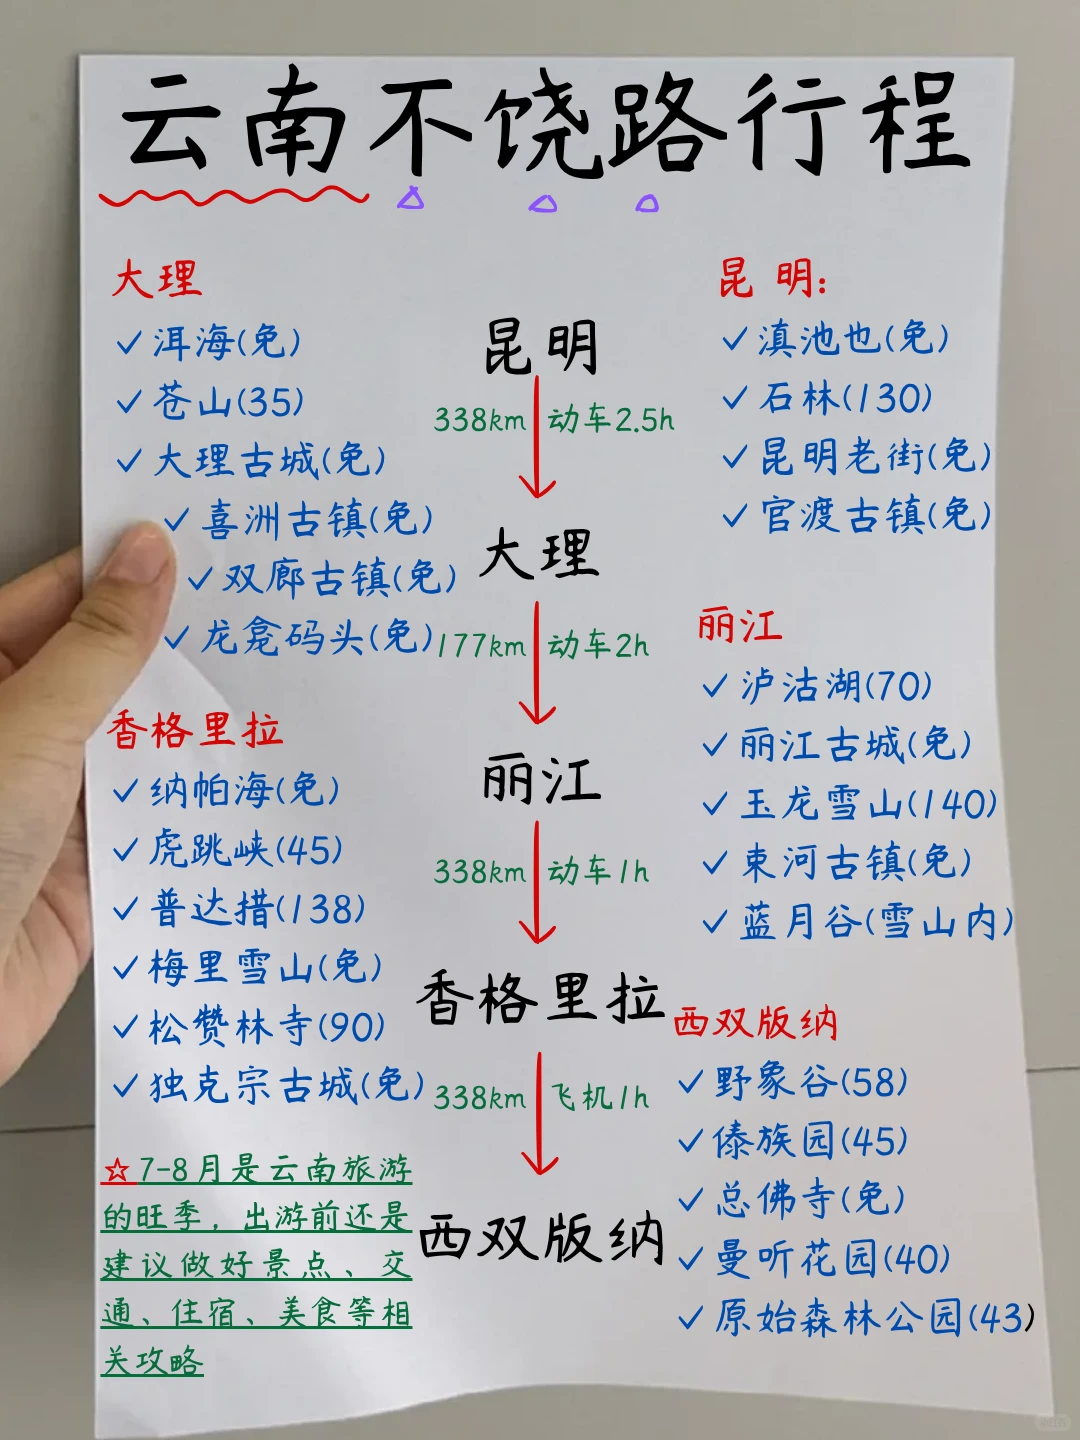 云南不饶路行程
大理
✓洱海(免)
✓苍山(35)
✓大理古城(免)
✓喜洲古镇(免)
✓双廊古镇(免)
✓龙龛码头(免)
香格里拉
✓纳帕海(免)
✓虎跳峡(45)
✓普达措(138)
✓梅里雪山(免)
✓松赞林寺(90)
✓独克宗古城(免)
☆7-8月是云南旅游
的旺季，出游前还是
建议做好景点、交
通、住宿、美食等相
关攻略
昆明
338km 动车2.5h
大理
177km 动车2h
丽江
338km 动车1h
香格里拉
338km 飞机1h
西双版纳
昆 明:
✓滇池也(免)
✓石林(130)
✓昆明老街(免)
✓官渡古镇(免)
丽江
✓泸沽湖(70)
✓丽江古城(免)
✓玉龙雪山(140)
✓束河古镇(免)
✓蓝月谷(雪山内)
西双版纳
✓野象谷(58)
✓傣族园(45)
✓总佛寺(免)
✓曼听花园(40)
✓原始森林公园(43)